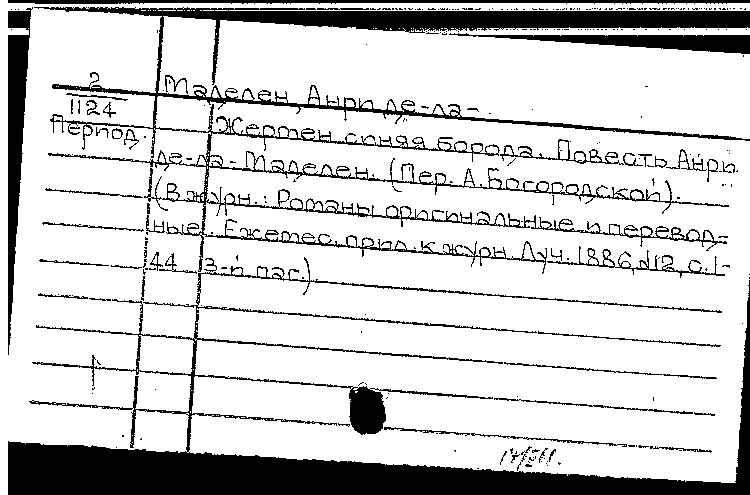 2
1124
Период.
Маделен, Анри де-ла-
Жермен синяя борода. Повесть Анри
де-ла-Маделен. (Пер. А. Богородской).
(В журн.: Романы оригинальные и перевод-
ные. Ежемес. прил. к журн. Луч. 1886, №12, с. 1-
44 3-й паг.)